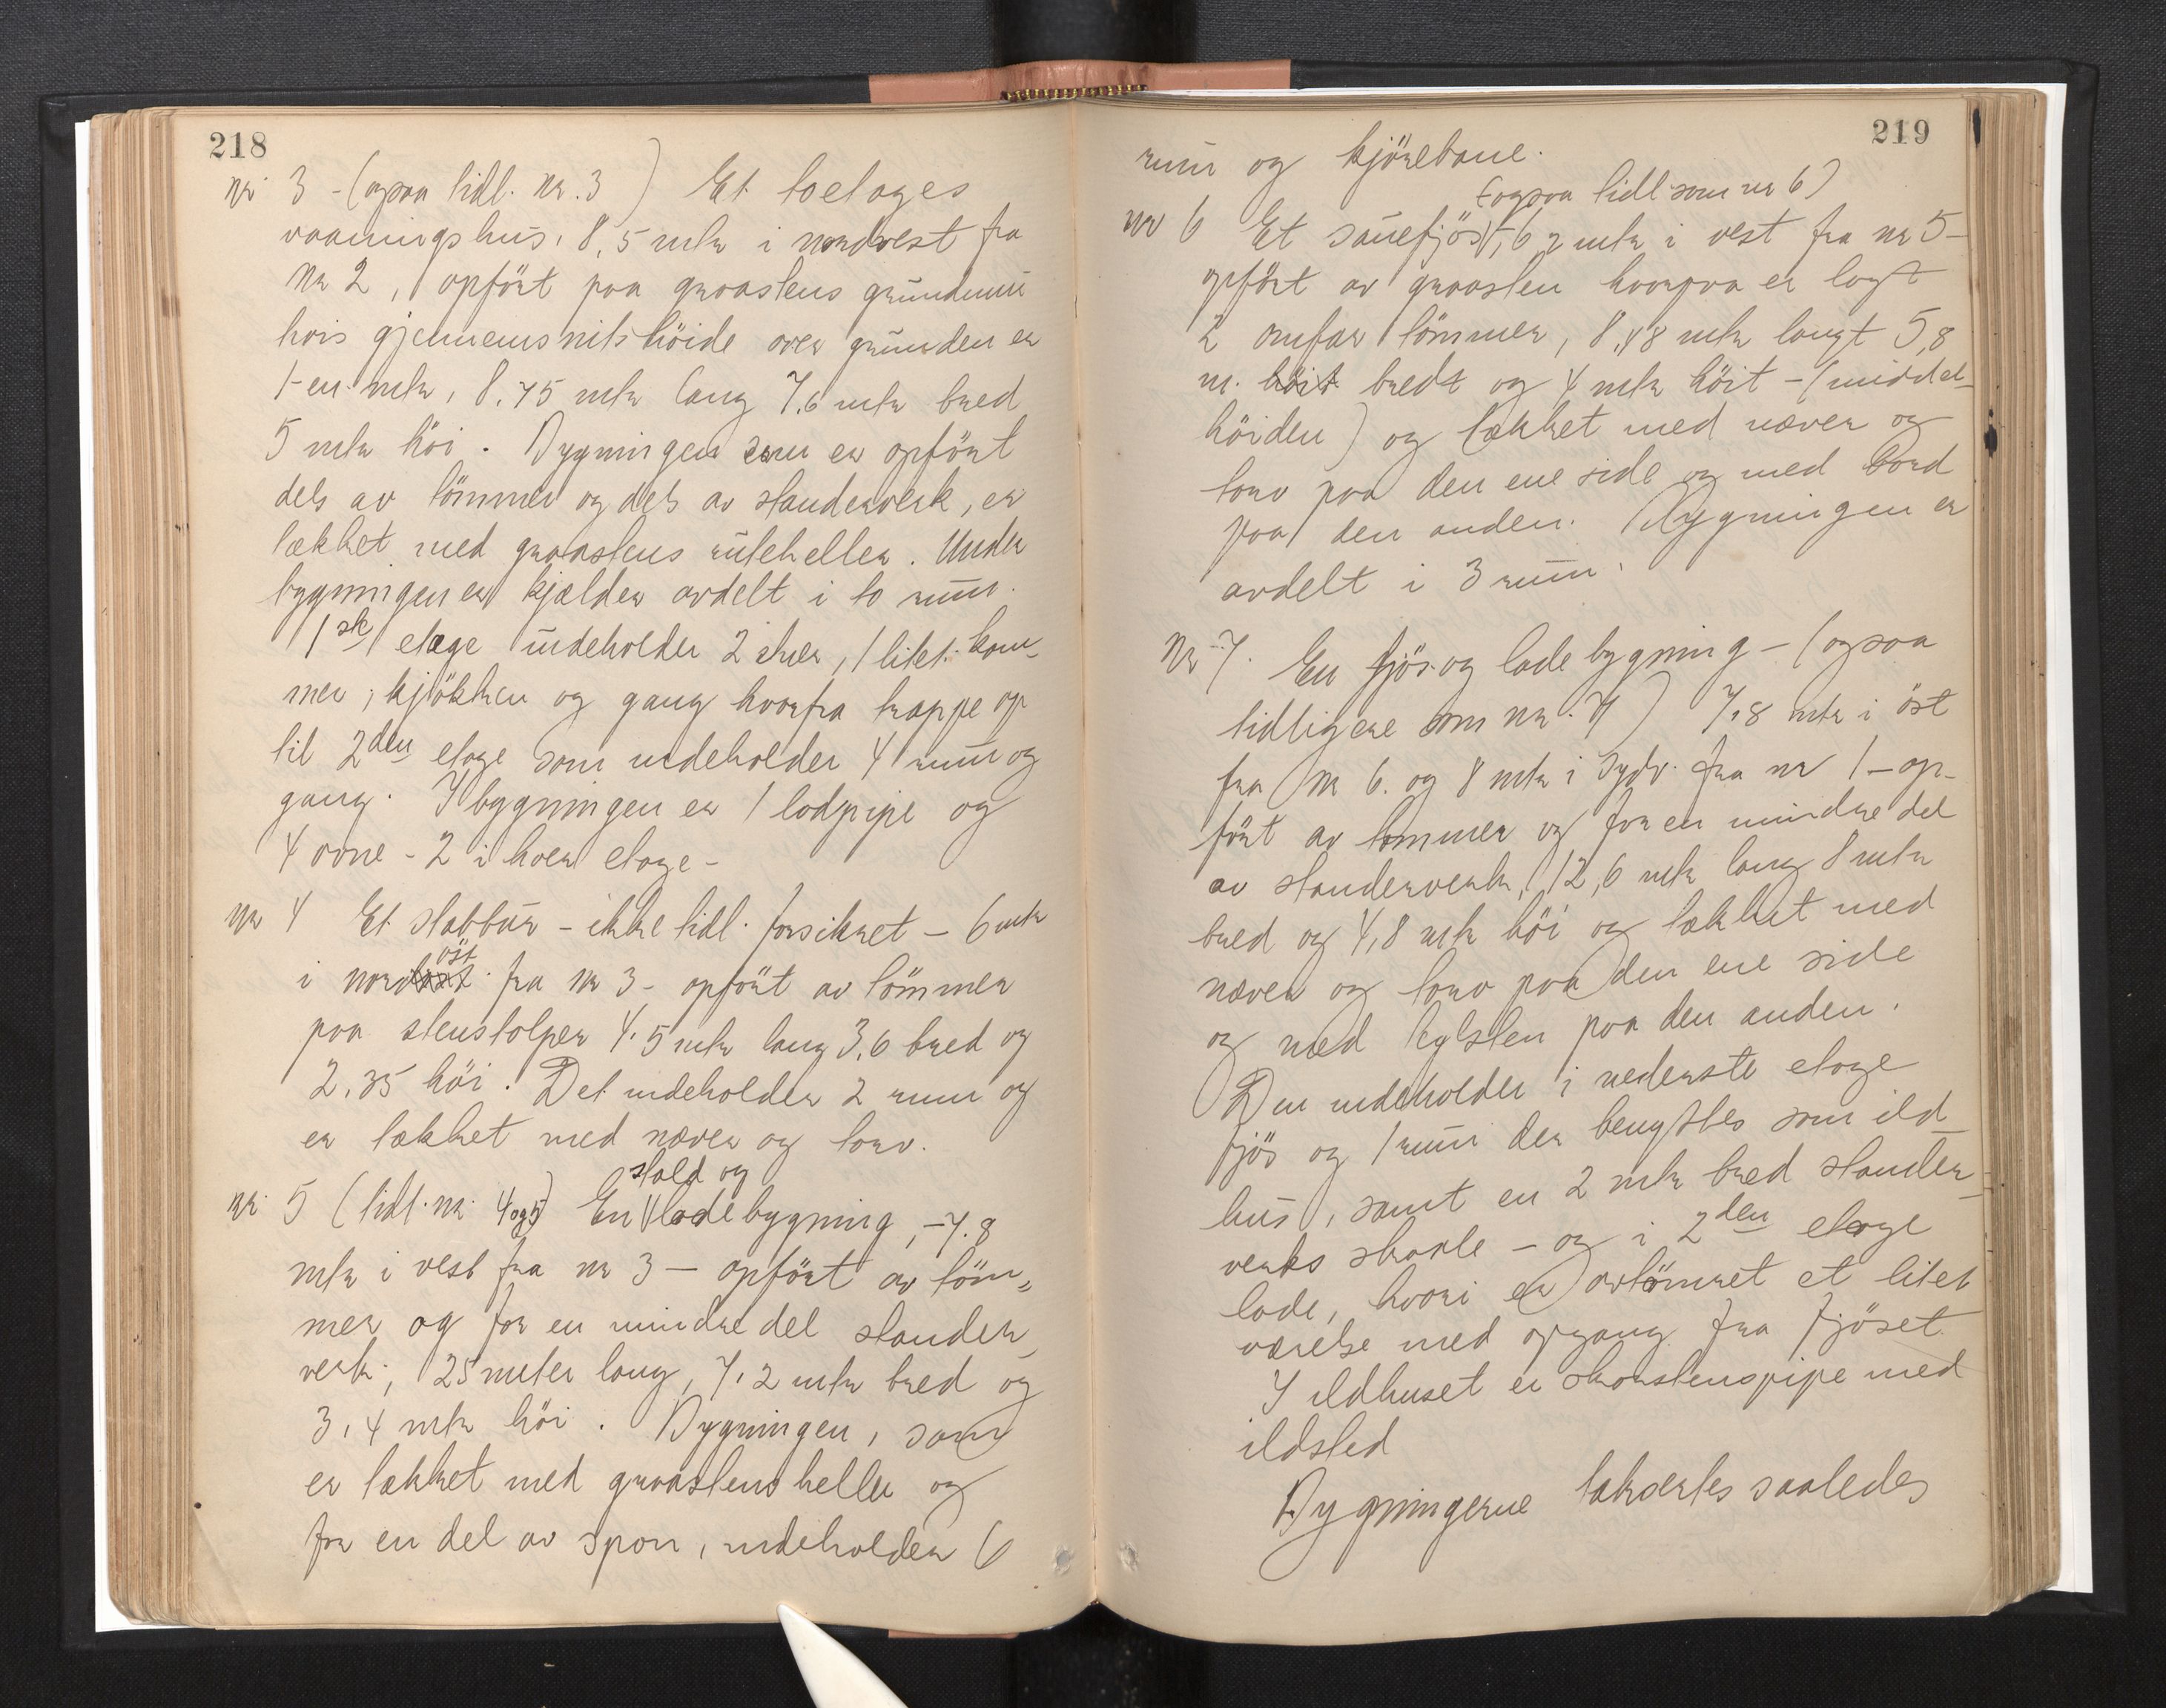 218
nr 3 - (ogsaa tidl. nr. 3) Et toetages
vaaningshus, 8,5 mtr i nordvest fra
nr 2, opført paa graastens grundmur
hvis gjennemsnitshöide over grunden er
1-en mtr, 8,75 mtr lang 7,6 mtr bred
5 mtr höi. Bygningen som er opfört
dels av tömmer og dels av standerverk, er
tækket med graastens ruteheller. Under
bygningen er kjælder avdelt i to rum.
1ste etage indeholder 2 stuer, 1 litet kam-
mer, kjökken og gang hvorfra trappe op
til 2den etage som indeholder 4 rum og
gang. I bygningen er 1 lodpipe og
4 ovne - 2 i hver etage -
nr 4 Et stabbur - ikke tidl. forsikret - 6 mtr
öst
i nord fra nr 3 - opfört av tömmer
paa stenstolper 4,5 mtr lang 3,6 bred og
2,35 höi. Det indeholder 2 rum og
er tækket med næver og torv.
stald og
nr 5 (tidl. nr. 4 og 5) En ladebygning, - 7,8
mtr i vest fra nr 3 - opfört av töm-
mer og for en mindre del stander-
verk, 25 meter lang, 7,2 mtr bred og
3,4 mtr höi. Bygningen, som
er tækket med graastens heller og
for en del av spon, indeholder 6
219
rum og kjörebane.
(ogsaa tidl som nr 6)
nr 6 Et sauefjös, 6,2 mtr i vest fra nr 5 -
opfört av graasten hvorpaa er lagt
2 omfar tömmer, 8,48 mtr langt 5,8
m. höit bredt og 4 mtr höit - (middel-
höiden) og tækket med næver og
torv paa den ene side og med bord
paa den anden. Bygningen er
avdelt i 3 rum.
Nr 7. En fjös og ladebygning - (ogsaa
tidligere som nr. 7) 7,8 mtr i öst
fra nr 6. og 8 mtr i sydv. fra nr 1 - op-
fört av tömmer og for en mindre del
av standerverk, 12,6 mtr lang 8 mtr
bred og 4,8 mtr höi og tækket med
næver og torv paa den ene side
og med teglsten paa den anden.
Den indeholder i nederste etage
fjös og 1 rum der benyttes som ild-
hus, samt en 2 mtr bred stander-
verks skaale - og i 2den etage
lade, hvori er avtömret et litet
værelse med opgang fra fjöset.
I ildhuset er skorstenspipe med
ildsted
Bygningerne takseres saaledes